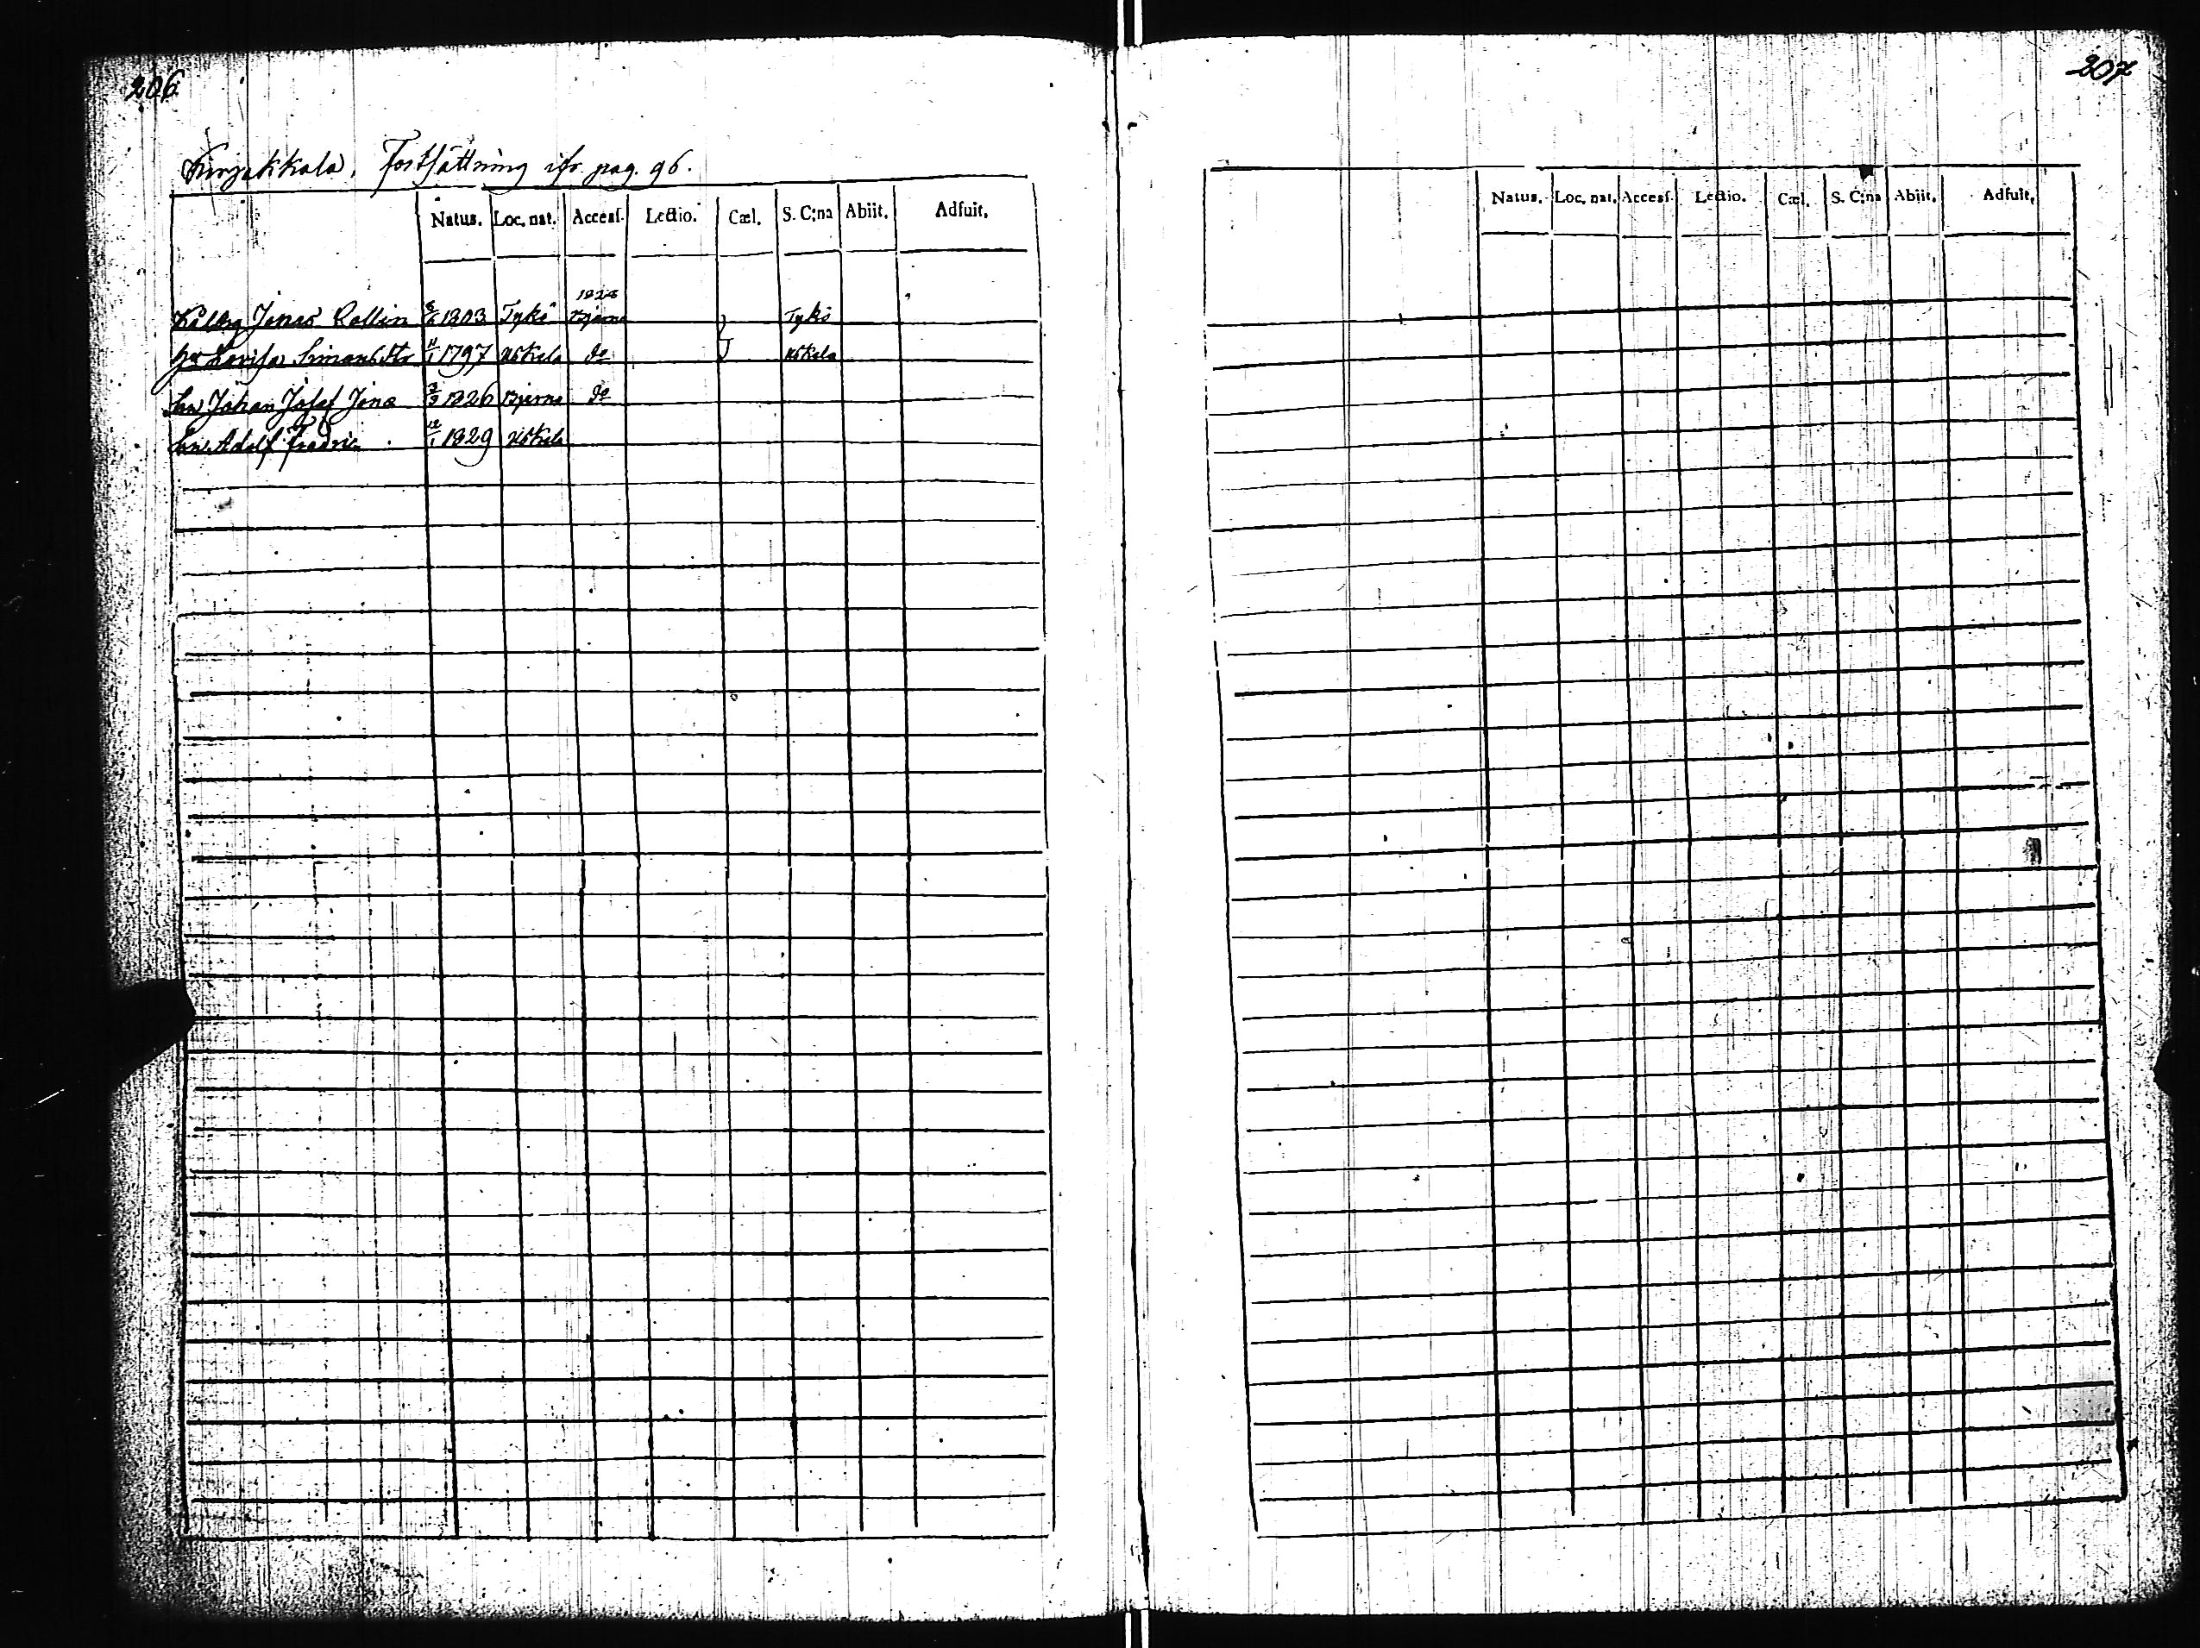 206
Kirjakkala. Fortsättning ifr. pag. 96.
Natus. Loc. nat. Accesſ. Lectio. Cæl. S. C:na Abiit. Adfuit.
1828
Jonas Collin 1803 Tykö Bjerno Tykö
Lovisa Simonsdtr 11/1 1797 Uskela do Uskela
Son Johan Josef Jonæ 1826 Bjerno do
Son Adolf Fredric 1829 Uskela
207
Natus. Loc. nat. Accesſ. Lectio. Cæl. S. C:na Abiit. Adfuit.